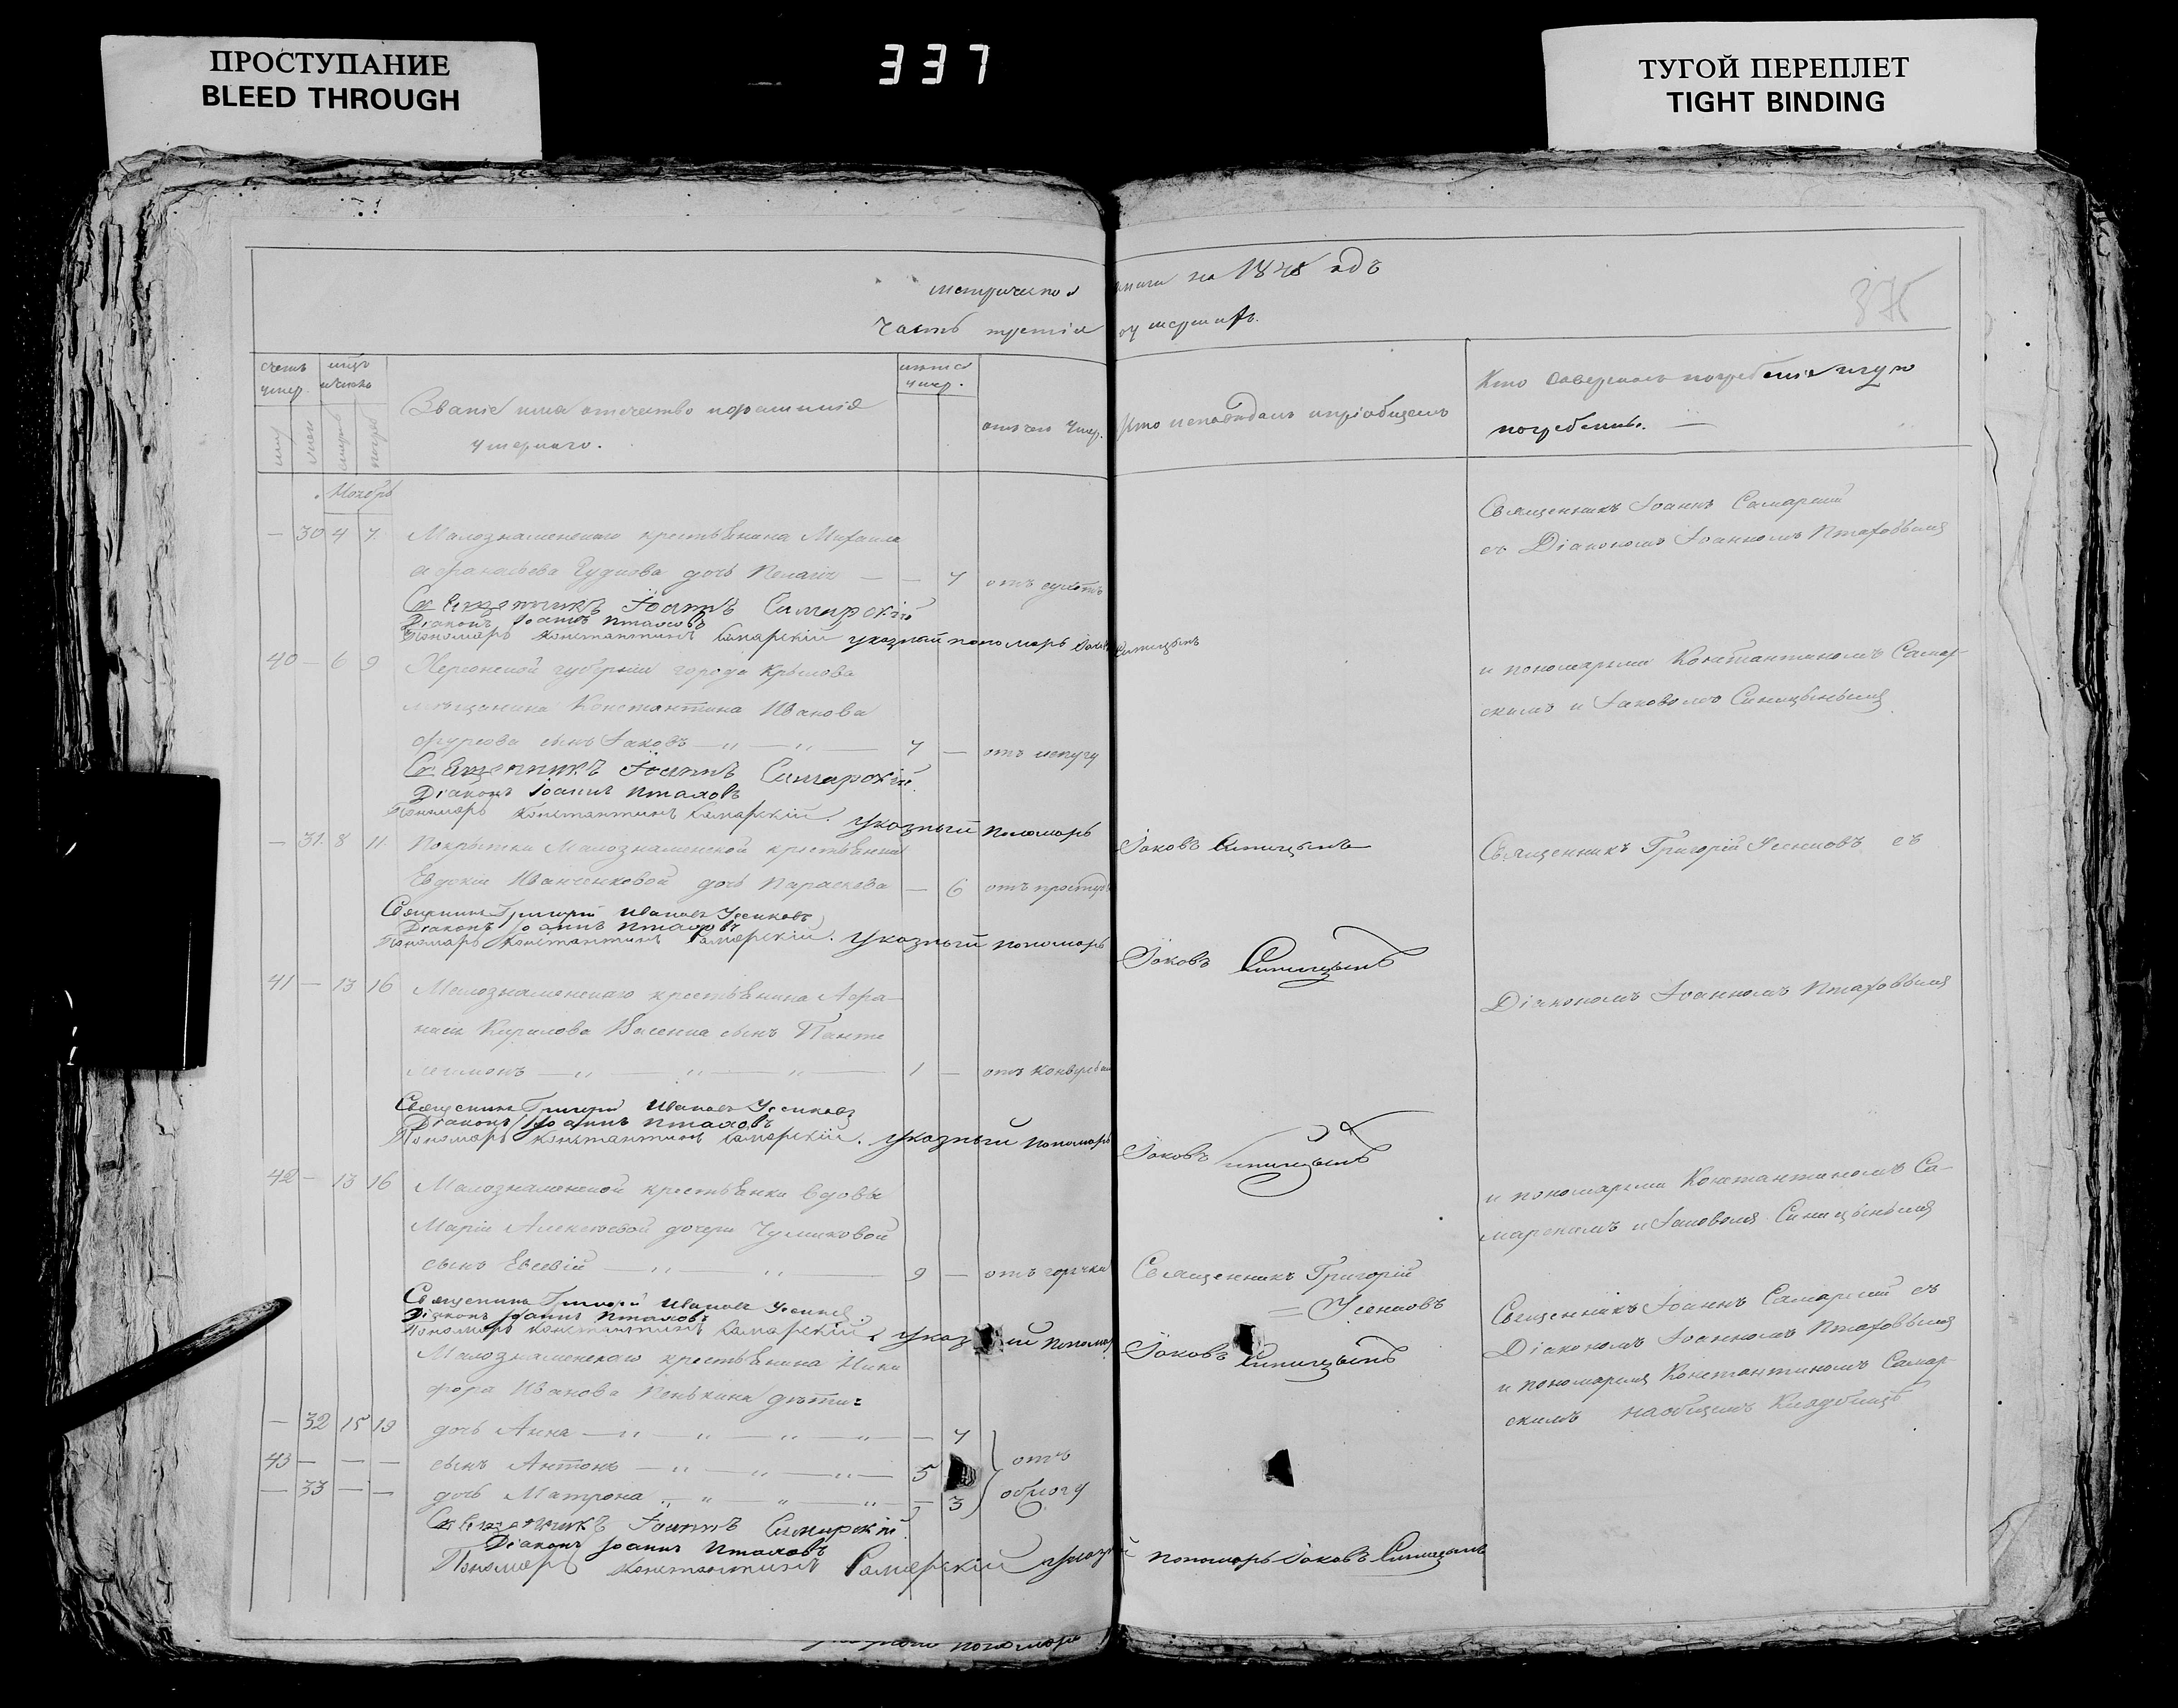 ПРОСТУПАНИЕ
BLEED THROUGH
337
ТУГОЙ ПЕРЕПЛЕТ
TIGHT BINDING
метрической книги на 1848 годъ
Часть третія оу мершихъ.
375
счетъ умер.
мцъ и число
Званіе имя отчество и фамилия
умершаго.
лѣта умер.
отъ чего умер.
Кто исповѣдалъ и пріобщалъ
Кто совершалъ погребеніе и гдѣ
погребены.
Ноябрь
— 30 4 7 Малознаменскаго крестьянина Михаила
Афанасьева дочь Пелагія — — 7 отъ сухотъ
Священникъ Іоаннъ Самарскій
съ Діакономъ Іоанномъ Птаховымъ
Священникъ Іоаннъ Самарскій
Діаконъ Іоаннъ Птаховъ
Пономарь Константинъ Самарскій указный пономарь Іаковъ Синицынъ
40 — 6 9 Херсонской губерніи города Крылова
мѣщанина Константина Иванова
сынъ Іаковъ — " — " — 7 — отъ испугу
и пономарями Константиномъ Самар-
скимъ и Іаковомъ Синицынымъ
Священникъ Іоаннъ Самарскій
Діаконъ Іоаннъ Птаховъ
Пономарь Константинъ Самарскій. Указный пономарь Іаковъ Синицынъ
— 31. 8 11. Покрытки Малознаменской крестьянки
Евдокіи Иванченковой дочь Параскева — 6 отъ простуды
Священникъ Григорій Усенковъ съ
Священникъ Григорій Ивановъ Усенковъ
Діаконъ Іоаннъ Птаховъ
Пономарь Константинъ Самарскій. Указный пономарь Іаковъ Синицынъ
41 — 13 16 Малознаменскаго крестьянина Афа-
насія Кирилова сынъ Панте
леимонъ — " — " — " — 1 —
Діакономъ Іоанномъ Птаховымъ
Священникъ Григорій Ивановъ Усенковъ
Діаконъ Іоаннъ Птаховъ
Пономарь Константинъ Самарскій. Указный пономарь Іаковъ Синицынъ
42 — 13 16 Малознаменской крестьянки вдовы
Маріи Алексѣевой дочери Чумиковой
сынъ Евсевій — " — " — 9 — отъ горячки Священникъ Григорій
= Усенковъ
и пономарями Константиномъ Са-
марскимъ и Іаковомъ Синицынымъ
Священникъ Григорій Ивановъ Усенковъ
Діаконъ Іоаннъ Птаховъ
Пономарь Константинъ Самарскій. Указный пономарь Іаковъ Синицынъ
Малознаменскаго крестьянина Ники
фора Иванова Пенькина дѣти:
— 32 15 19 дочь Анна — " — " — " — " — 7
43 — — — сынъ Антонъ — " — " — " — 5 отъ
— 33 — — дочь Матрона — " — " — " — 3 обпогу
Священникъ Іоаннъ Самарскій съ
Діакономъ Іоанномъ Птаховымъ
и пономаремъ Константиномъ Самар-
скимъ на общемъ Кладбищѣ
Священникъ Іоаннъ Самарскій
Діаконъ Іоаннъ Птаховъ
Пономарь Константинъ Самарскій указный пономарь Іаковъ Синицынъ